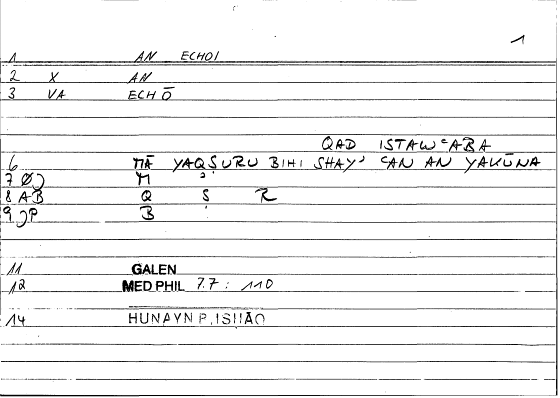 1
1 AN ECHOI
2 X AN
3 VA ECHŌ
QAD ISTAWᶜABA
6 MĀ YAQṢURU BIHI SHAYʾ ᶜAN AN YAKŪNA
7 M ʾ
8 AB Q Ṣ R
9 B
11 GALEN
12 MED PHIL 7.7 : 110
14 HUNAYN P. ISHĀQ